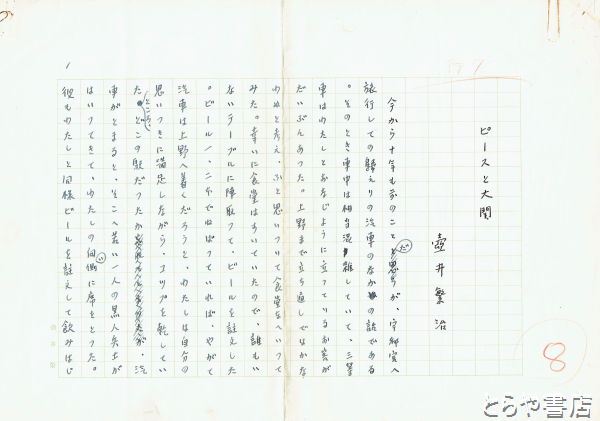 ピースと大関
壺井繁治
今から十年も前のことだが、宇都宮へ
旅行しての帰えりの汽車のなかの話である
。そのとき車中は相当混雑していて、三等
車はわたしとおなじように立っているお客が
だいぶんあった。上野まで立ち通しではかな
わぬと考え、ふと思いついて食堂車へいって
みた。幸いに食堂はすいていたので、誰もい
ないテーブルに陣取って、ビールを註えした
。ビール一、二本でねばっていれば、やがて
汽車は上野へ着くだろうと、わたしは自分の
思いつきに満足しながら、コップを乾してい
た。ところが、どこの駅だったか、汽
車がとまると、そこへ若い一人の黒人兵士が
はいってきて、わたしの向い側に席をとった。
彼もわたしと同様ビールを註えして飲みはじ
8
1
とらや書店